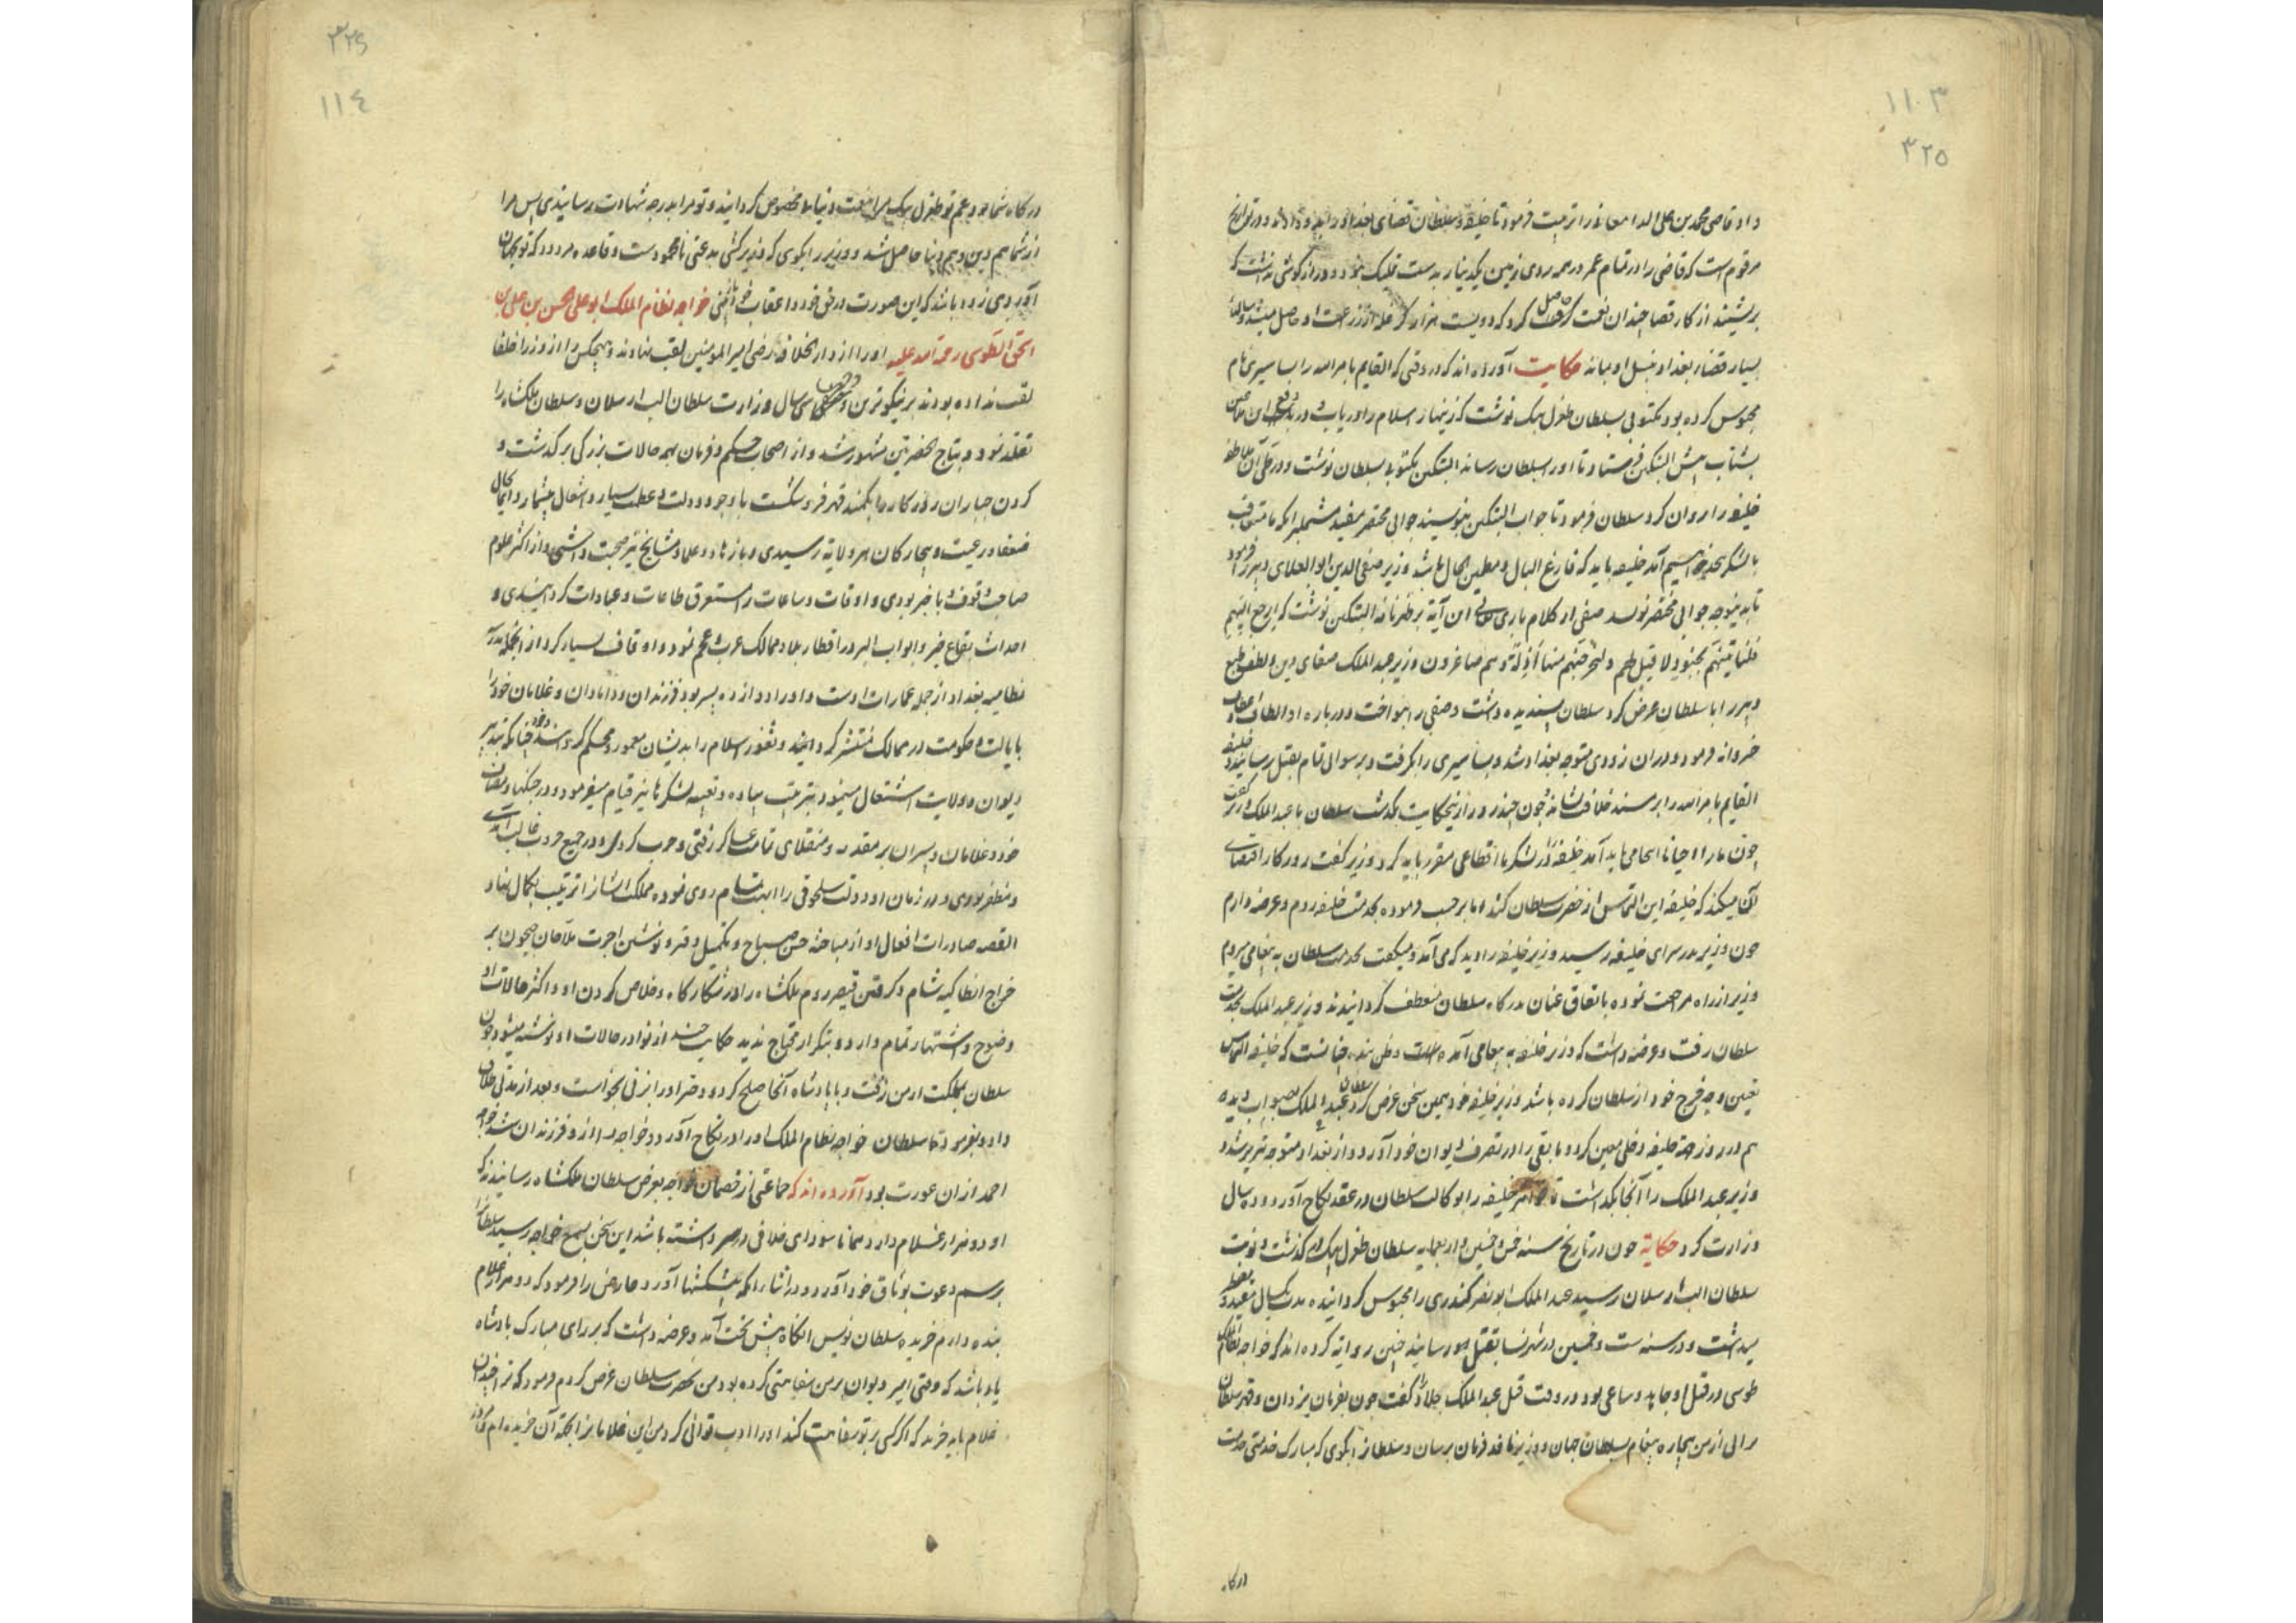 ۱۱۰۳
۳۲۵
داد قاضی محمد بن علی الدامغانی را تربیت فرمود تا خلیفه و سلطان قضای بغداد را بدو دادند و در تواریخ
مرقوم است که قاضی را در تمام عمر در همه روی زمین یکدینار بدست تملیک نبود و دراز گوشی نداشت که
برنشیند از کار قضا چندان نعمت حاصل کرد که دویست هزار کر غله از زراعت او حاصل میشد و سالها
بسیار قضاء بغداد بنسل او بماند حکایت آورده اند که در وقتی که القایم بامر الله را بساسیری بام
محبوس کرده بود مکتوبی بسلطان طغرل بیک نوشت که زینهار اسلام را دریاب و در دفع این ملاعین
بشتاب پیش التکین فرستاد تا او بسلطان رساند التکین مکتوبی بسلطان نوشت و در طی آن ملاطفه
خلیفه را روان کرد سلطان فرمود تا جواب التکین بنویسند جوابی مختصر مفید مشتمل برآنکه ما متعاقب
بالشکر بخدمت خواهیم آمد خلیفه باید که فارغ البال و مطمین الحال باشد وزیر صفی الدین ابو العلای دبیر را فرمود
تا بدینوجه جوابی مختصر نویسد صفی از کلام باری تعالی این آیة بر ظهر نامه التکین نوشت که ارجع الیهم
فلناتینهم بجنود لا قبل لهم و لنخرجنهم منها اذلة و هم صاغرون وزیر عبد الملک صفای ذهن و لطف طبع
دبیر را با سلطان عرض کرد سلطان پسندیده داشت و صفی را بنواخت و درباره او الطاف و اعطاف
خسروانه فرمود و دران زودی متوجه بغداد شد و بساسیری را بگرفت و برسوایی تمام بقتل رسانید و خلیفه
القایم بامر الله را بر مسند خلافت نشاند و چون چند روز ازینحکایت بگذشت سلطان با عبد الملک وزیر گفت
چون ما را احیانا اینجا می باید آمد خلیفه و لشکر ما اقطاعی مقرر باید کرد وزیر گفت روزکار اقتضای
آن میکند که خلیفه این التماس از حضرت سلطان کند اما بر حسب فرموده بخدمت خلیفه روم و عرضه دارم
چون وزیر بدر سرای خلیفه رسید وزیر خلیفه را دید که می آمد و میگفت بخدمت سلطان به پیغامی میروم
وزیر از راه مراجعت نموده باتفاق عنان بدرکاه سلطان منعطف گردانیدند وزیر عبد الملک بخدمت
سلطان رفت و عرضه داشت که وزیر خلیفه به پیغامی آمده است و ظن بنده چنانست که خلیفه التماس
تعیین وجه خرج خود از سلطان کرده باشد وزیر خلیفه خود همین سخن عرض کرد سلطان عبد الملک بصواب دیده
هم در روز جهة خلیفه دخلی معین کرد و مابقی را در تصرف دیوان خود آورد و از بغداد متوجه تبریز شد و
وزیر عبد الملک را آنجا بگذاشت تا خواهر خلیفه را بوکالت سلطان در عقد نکاح آورد و ده سال
وزارت کرد حکایة چون در تاریخ سنه خمس و خمسین و اربعمایه سلطان طغرل بیک در گذشت و نوبت
سلطان الب ارسلان رسید عبد الملک ابو نصر کندری را محبوس گردانیده مدت یکسال مقید و
میداشت و در سنه ست و خمسین در شهر نسا بقتل رسانید چنین روایة کرده اند که خواجه نظام الملک
طوسی در قتل او جاهد و ساعی بود و در وقت قتل عبد الملک جلاد را گفت چون بفرمان یزدان و قهر سلطان
مرا از من بیچاره پیغام بسلطان جهان و وزیر نافذ فرمان برسان و سلطان را بگوی که مبارک خدمتی خدمت
درکا
۳۲۶
۱۱٤
درکاه شما بود عم تو طغرل بیک مرا بنعمت دنیا مخصوص گردانید و تو مرا بدرجه شهادت رسانیدی پس مرا
از شما هم دین و هم دنیا حاصل شد و وزیر را بگوی که وزیر کشی بدعتی نامحمودست و قاعده مردود که تو بجهان
آوردی زود باشد که این صورت در حق خود و اعقاب خود باز بینی خواجه نظام الملک ابو علی الحسن بن علی بن
اسحق الطوسی رحمة الله علیه او را از دار الخلافه رضی امیر المومنین لقب نهادند و هیچکس را از وزرا خلفا
لقب نداده بودند بر نیکوترین وجهی سی سال وزارت سلطان الب ارسلان و سلطان ملکشاه را
تقلد نمود و بتاج الحضرتین مشهور شد و از اصحاب حکم و فرمان بهمه حالات بزرگی برگذشت و
گردن جباران روزکار را بکمند قهر فرو شکست با وجود دولت و عظمت بسیار و اشغال بیشمار در ایام
ضعفا و رعیت و بیچارکان هر ولایة رسیدی و با زهاد و علما و مشایخ نیز صحبت داشتی و از اکثر علوم
صاحب وقوف و با خبر بودی و اوقات و ساعات را مستغرق طاعات و عبادات گردانیدی و
احداث بقاع خیر و ابواب البر در اقطار بلاد و ممالک عرب و عجم نمود و اوقاف بسیار کرد از آنجمله مدرسه
نظامیه بغداد از جمله عمارات اوست و او را دوازده پسر بود فرزندان و دامادان و غلامان خود را
بایالت و حکومت در ممالک منتشر گردانید و ثغور اسلام را بدیشان معمور و محکم کرد و خود چنانکه بتدبیر
دیوان و ولایت اشتغال مینمود بترتیب سپاه و تعبیه لشکرها نیز قیام میفرمود و در جنکها و مصاف
خود و غلامان و پسران بر مقدمه و منقلای تمامت عساکر رفتی و حرب کردی و در جمیع حروب غالب آمدی
و مظفر بودی و در زمان او دولت سلجوقی را ابهت تمام روی نموده مملکت ایشان را ترتیب بکمال نهاد
القصه صادرات افعال او از مباحثه حسن صباح و تکمیل دفتر و نوشتن اجرت ملاحان جیحون بر
خراج انطاکیه شام و گرفتن قیصر روم ملکشاه را در شکارکاه و خلاص کردن او و اکثر حالات او
وضوح و اشتهار تمام دارد و بتکرار محتاج ندید حکایت چند از نوادر حالات او نوشته میشود چون
سلطان بمملکت ارمن رفت و با پادشاه آنجا صلح کرد و دختر او را بزنی بخواست و بعد از مدتی طلاق
داد و بفرمود تا سلطان خواجه نظام الملک او را در نکاح آورد و خواجه را ازو فرزندان شد خواجه
احمد ازان عورت بود آورده اند که جماعتی از خصمان خواجه بعرض سلطان ملکشاه رسانیدند که
او دو هزار غلام دارد همانا سودای خلافی در سر داشته باشد این سخن بسمع خواجه رسید سلطان را
برسم دعوت بوثاق خود آورد و در اثناء آنکه پیشکشها آورد عارض را فرمود که دو هزار غلام
بنده دارم خریده سلطان نویس آنکاه پیش تخت آمد و عرضه داشت که بر رای مبارک پادشاه
یاد باشد که وقتی امیر دیوان بر من سفاهتی کرده بود من بحضرت سلطان عرض کردم فرمود که ترا چندان
غلام باید خرید که اگر کسی بر تو سفاهت کند او را ادب توانی کرد من این غلامان را بجهة آن خریده ام